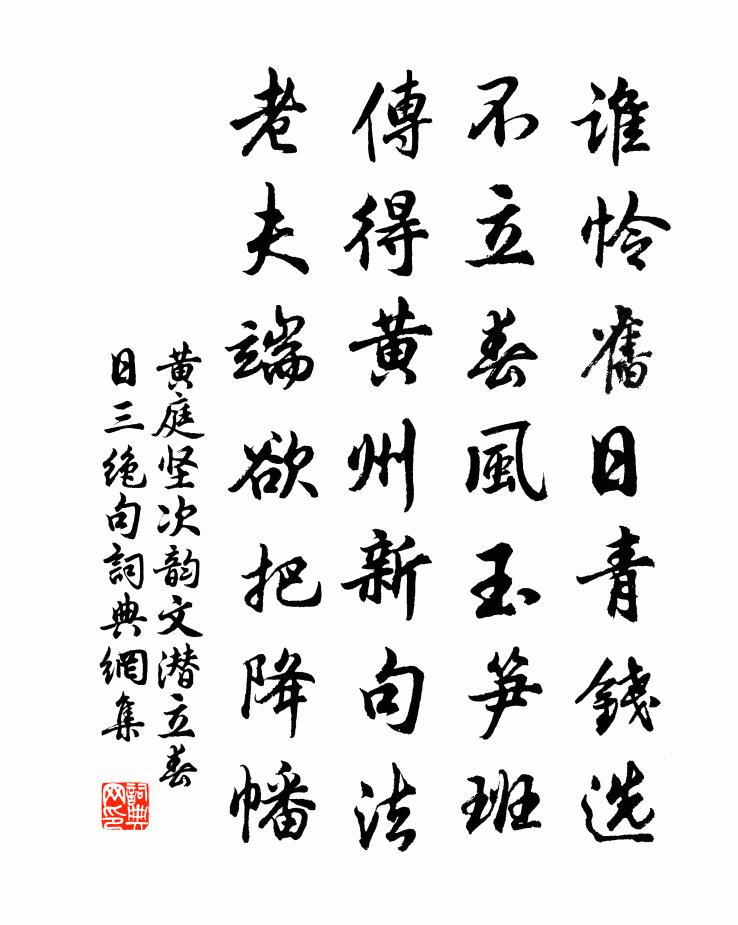 谁怜舊日青錢选
不立春風玉笋班
傳得黄州新句法
老夫端欲把降幡
黄庭坚次韵文潜立春
日三绝句詞典網集
詞典网印